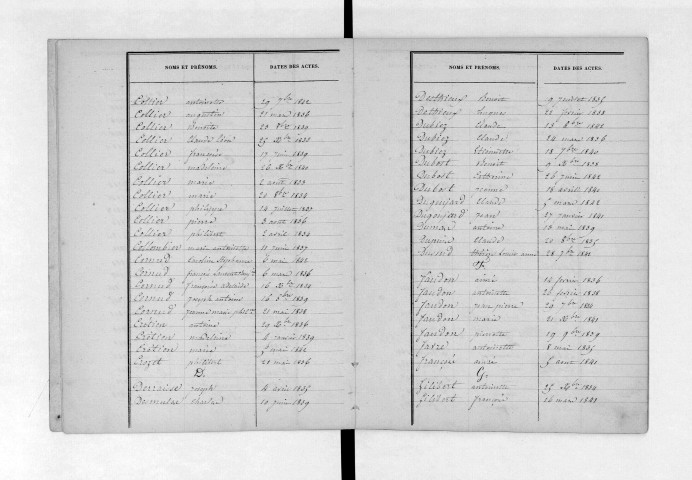 NOMS ET PRÉNOMS. DATES DES ACTES.
Collier antoinette 29 7bre 1842
Collier augustin 21 mai 1836
Collier benoite 23 8bre 1839
Collier Claude 25 Xbre 1838
Collier françois 17 juin 1839
Collier madeleine 26 Xbre 1840
Collier marie 2 aout 1833
Collier marie 20 8bre 1834
Collier philippe 24 juillet 1837
Collier pierre 3 aout 1836
Collier philibert 2 avril 1834
Collombier marie antoinette 11 juin 1837
Cornud Caroline Stéphanie 3 mai 1842
Cornud françois 6 mars 1836
Cornud françoise 16 Xbre 1834
Cornud joseph antoine 16 8bre 1839
Cornud jeanne marie 21 mai 1838
Crétion antoine 29 Xbre 1836
Crétion madeleine 6 janvier 1839
Crétion marie 5 mai 1842
Crozet philibert 21 mai 1836
D.
Derraise joseph 14 avril 1835
Desmulae Charles 10 juin 1839
NOMS ET PRENOMS. DATES DES ACTES.
Desthieux Benoit 9 juillet 1835
Desthieux 22 février 1838
Dubiez Claude 13 8bre 1842
Dubiez Claude 24 mai 1836
Dubiez 18 7bre 1840
Dubost Benoit 9 Xbre 1838
Dubost Catherine 26 juin 1842
Dubost 18 avril 1841
Dugoujard Claude 5 mars 1842
Dugoujard Jean 27 janvier 1841
Dumas antoine 13 mai 1839
Dupuire Claude 20 8bre 1835
Durand anne 28 7bre 1841
F.
Fandon aimé 14 février 1836
Fandon antoinette 26 février 1838
Fandon jean pierre 29 7bre 1834
Fandon marie 21 Xbre 1841
Fandon pierrette 19 9bre 1839
Favre antoinette 8 mai 1835
François aimée 5 aout 1841
G.
Gilibert antoinette 25 Xbre 1834
Gilibert françois 26 mars 1841